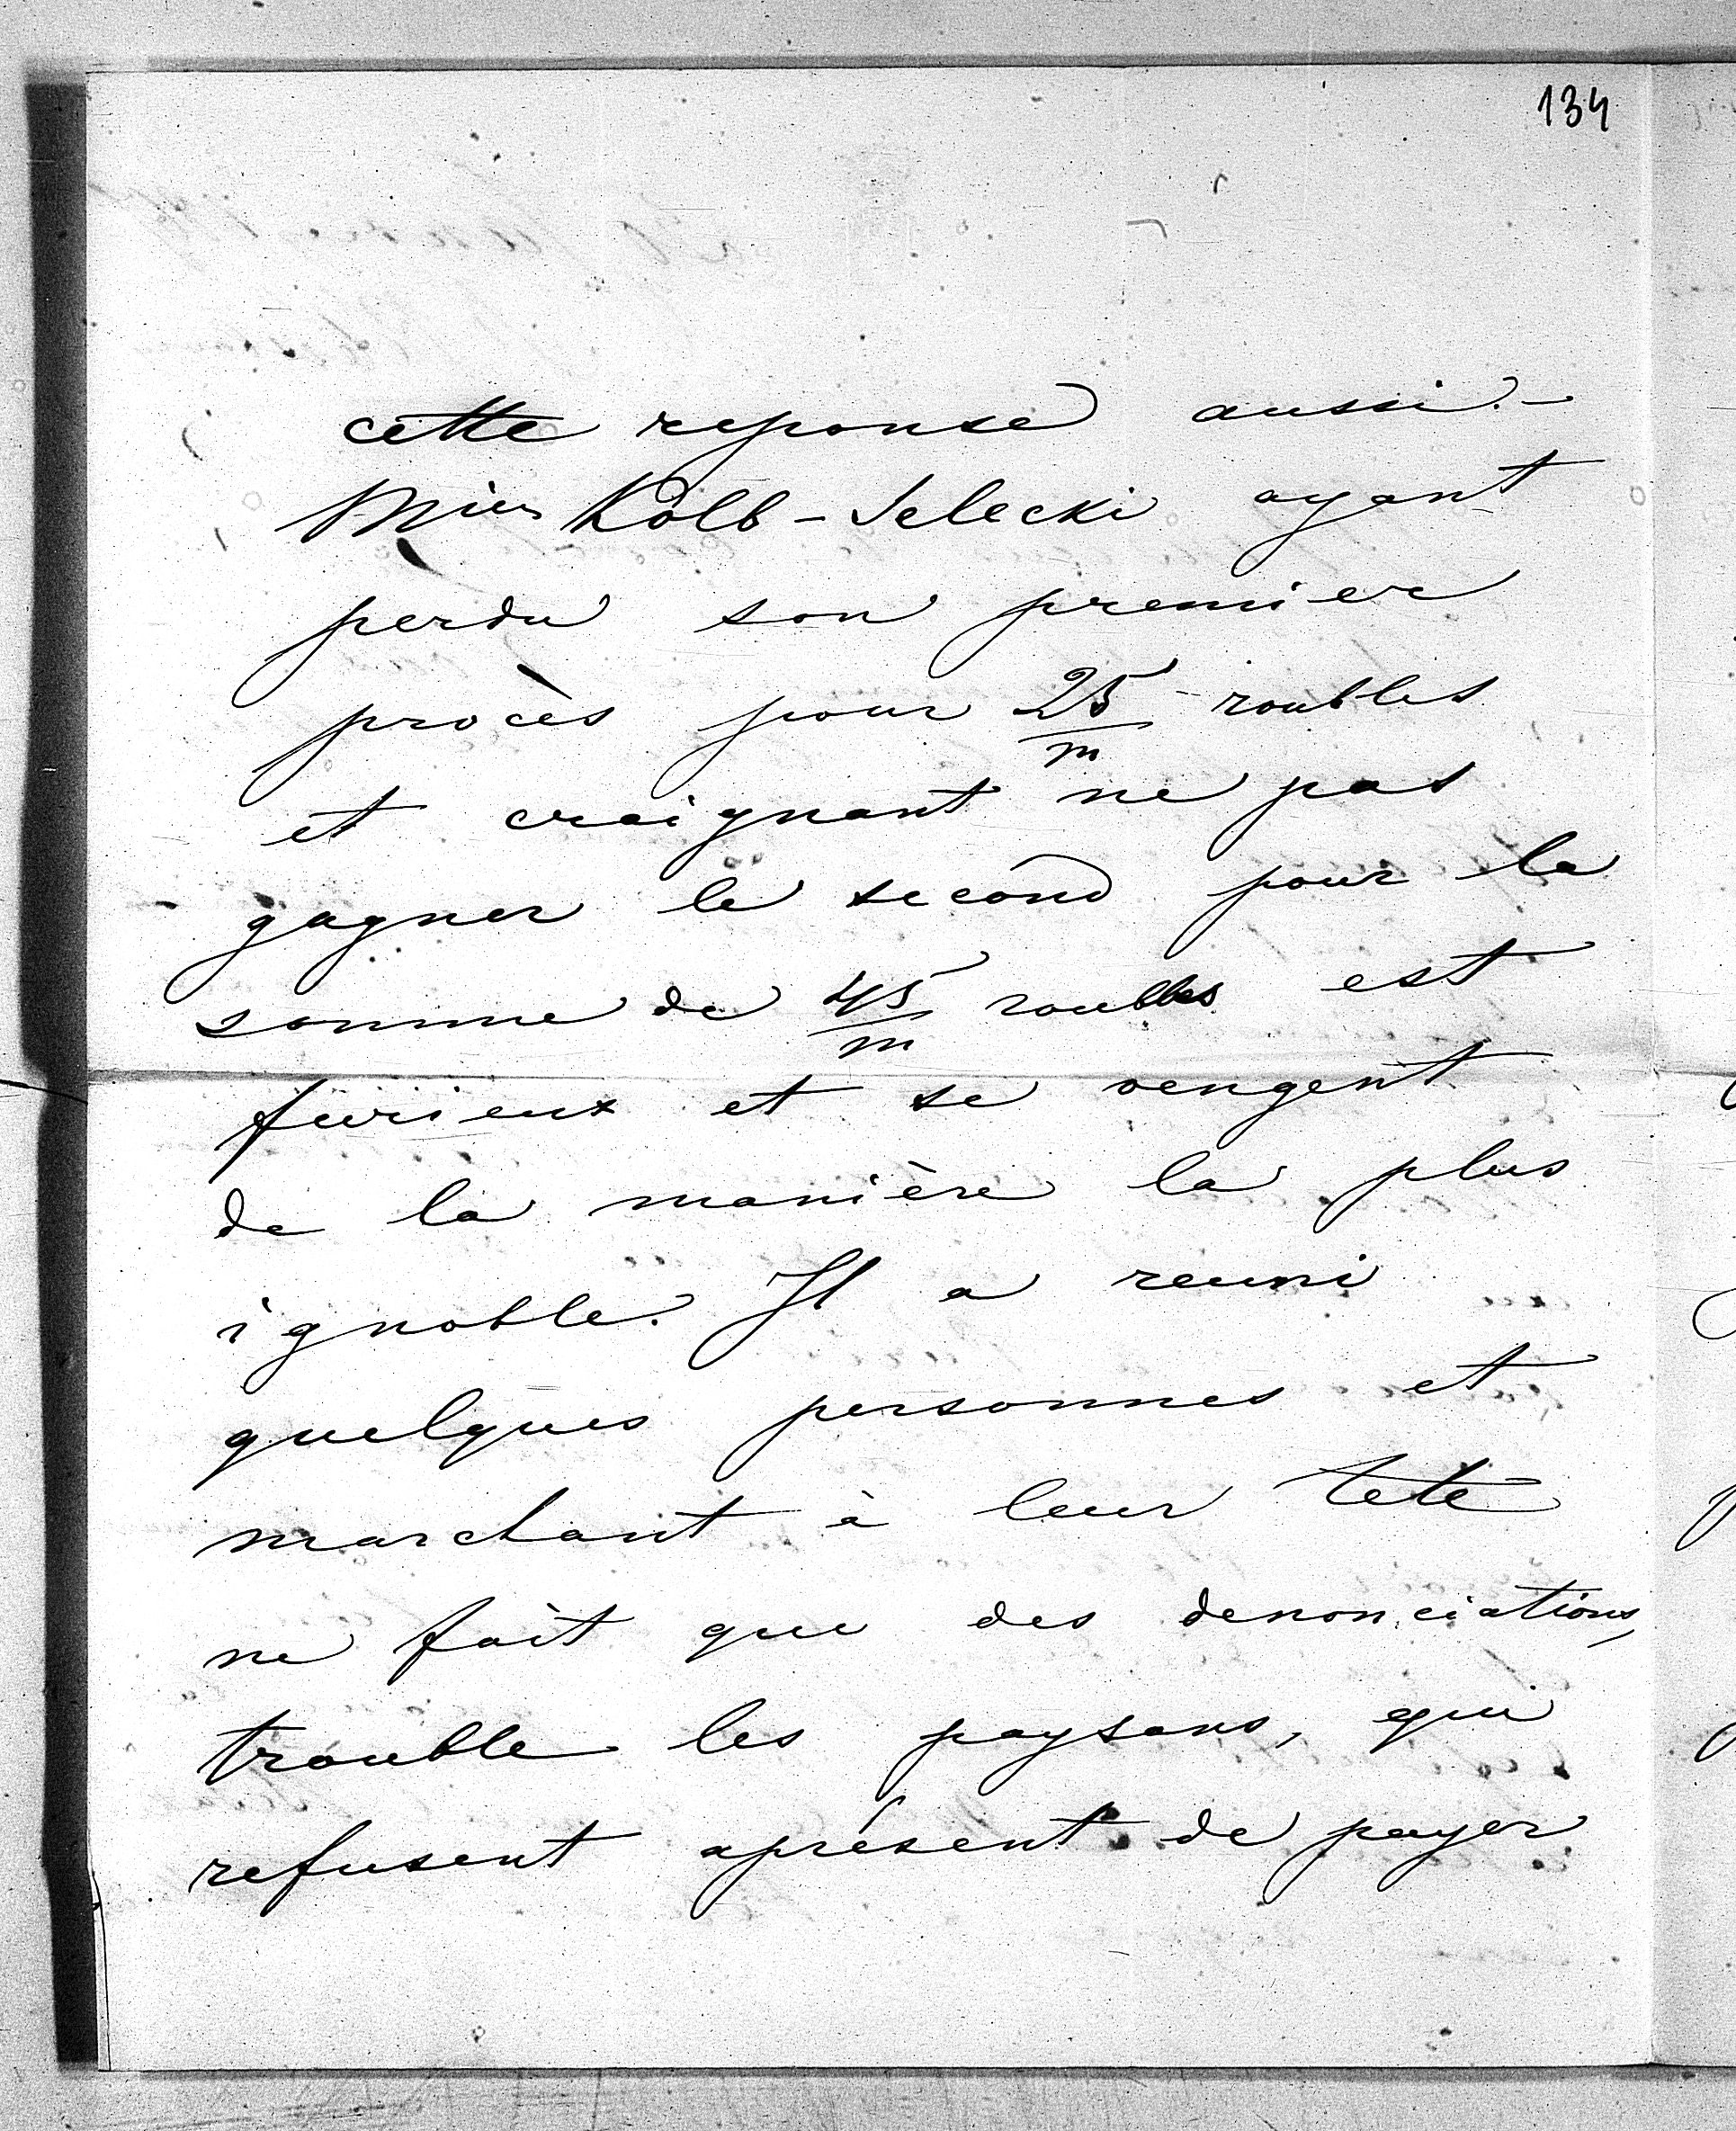 134
cette reponse aussi. –
Kolb-Selecki ayant
perdu son premier
procès pour 25/m roubles
et craignant ne pas
gagner le second pour la
somme de 45/m roubles est
furieux et se vengent
de la manière la plus
ignoble. Il a reuni
quelques personnes et
marchant à leur tete
ne fait que des denonciations,
trouble les paysans, qui
refusent apresent de payer